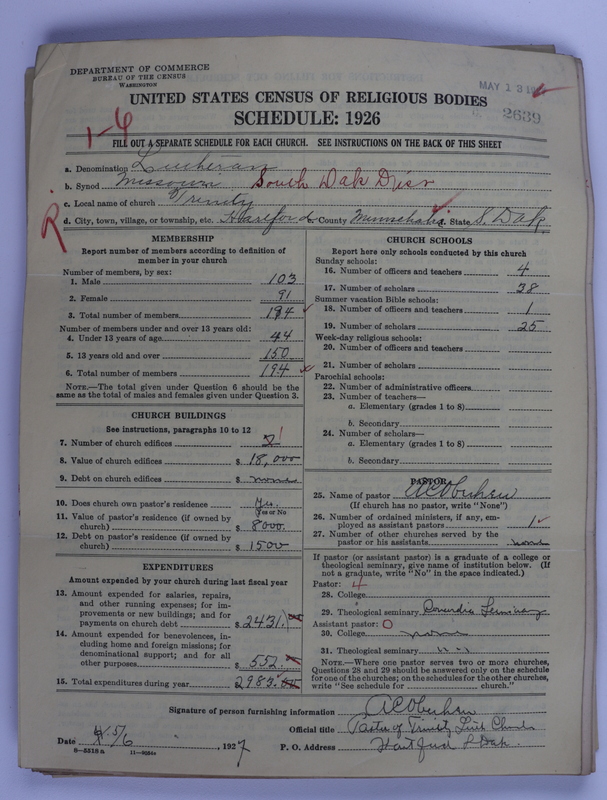 DEPARTMENT OF COMMERCE
BUREAU OF THE CENSUS
WASHINGTON
MAY 13
2639
UNITED STATES CENSUS OF RELIGIOUS BODIES
SCHEDULE: 1926
1-6
FILL OUT A SEPARATE SCHEDULE FOR EACH CHURCH. SEE INSTRUCTIONS ON THE BACK OF THIS SHEET
a. Denomination Lutheran
b. Synod Missouri South Dak Dist
c. Local name of church Trinity
d. City, town, village, or township, etc. Hartford County Minnehaha State S. Dak.
MEMBERSHIP
Report number of members according to definition of member in your church
Number of members, by sex:
1. Male 103
2. Female 91
3. Total number of members 194
Number of members under and over 13 years old:
4. Under 13 years of age 44
5. 13 years old and over 150
6. Total number of members 194
NOTE.—The total given under Question 6 should be the same as the total of males and females given under Question 3.
CHURCH BUILDINGS
See instructions, paragraphs 10 to 12
7. Number of church edifices 1
8. Value of church edifices $ 18,000
9. Debt on church edifices $ none
10. Does church own pastor's residence Yes
Yes or No
11. Value of pastor's residence (if owned by church) $ 8000.
12. Debt on pastor's residence (if owned by church) $ 1500
EXPENDITURES
Amount expended by your church during last fiscal year
13. Amount expended for salaries, repairs, and other running expenses; for improvements or new buildings; and for payments on church debt $ 2431.
14. Amount expended for benevolences, including home and foreign missions; for denominational support; and for all other purposes $ 552.
15. Total expenditures during year 2983.
CHURCH SCHOOLS
Report here only schools conducted by this church
Sunday schools:
16. Number of officers and teachers 4
17. Number of scholars 38
Summer vacation Bible schools:
18. Number of officers and teachers 1
19. Number of scholars 25
Week-day religious schools:
20. Number of officers and teachers
21. Number of scholars
Parochial schools:
22. Number of administrative officers
23. Number of teachers—
a. Elementary (grades 1 to 8)
b. Secondary
24. Number of scholars—
a. Elementary (grades 1 to 8)
b. Secondary
PASTOR
25. Name of pastor
(If church has no pastor, write "None")
26. Number of ordained ministers, if any, employed as assistant pastors 1
27. Number of other churches served by the pastor or his assistants none
If pastor (or assistant pastor) is a graduate of a college or theological seminary, give name of institution below. (If not a graduate, write "No" in the space indicated.)
Pastor: 4
28. College
29. Theological seminary Concordia Seminary
Assistant pastor: 0
30. College none
31. Theological seminary " "
NOTE.—Where one pastor serves two or more churches, Questions 28 and 29 should be answered only on the schedule for one of the churches; on the schedules for the other churches, write "See schedule for church."
Signature of person furnishing information
Official title Pastor of Trinity Luth Church
Date 5/6, 1927 P. O. Address Hartford S Dak.
8-5318a